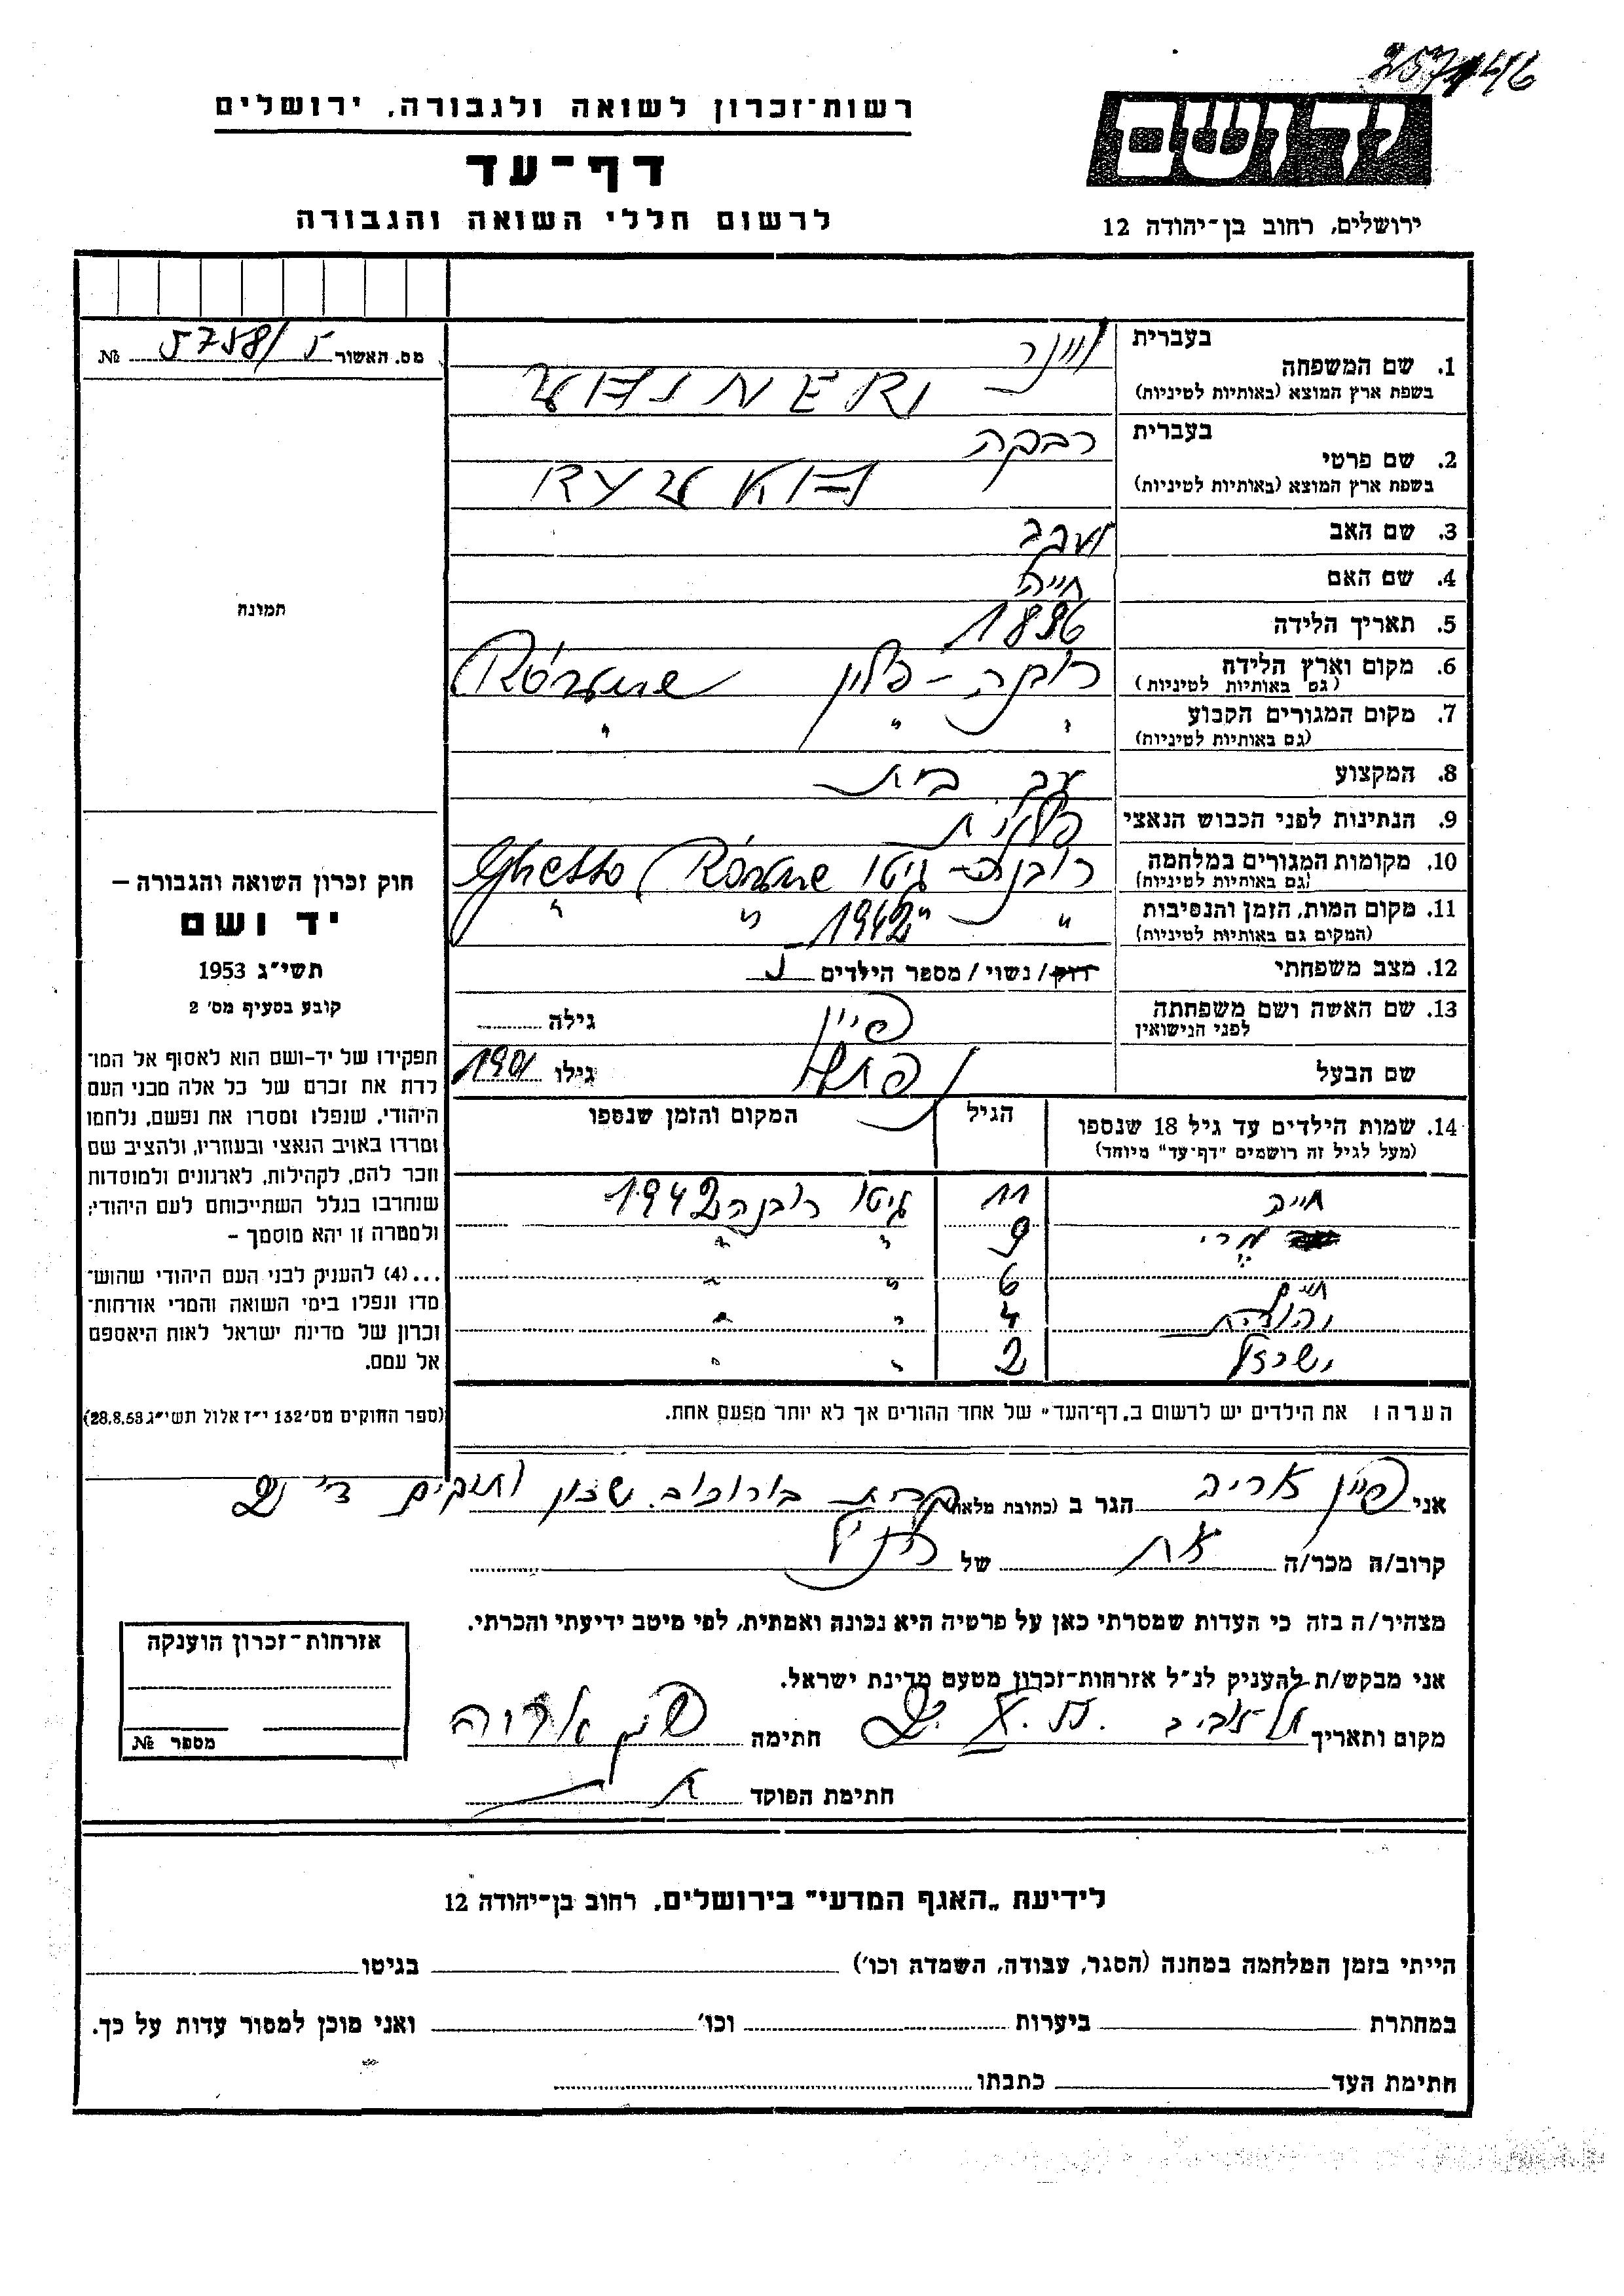 257146
רשות־זכרון לשואה ולגבורה, ירושלים
דף־עד
לרשום חללי השואה והגבורה
יד ושם
ירושלים, רחוב בן־יהודה 12
מס. האשור 5758/5 №
בעברית
1. שם המשפחה
וינר
בשפת ארץ המוצא (באותיות לטיניות)
WAJNER
בעברית
2. שם פרטי
רבקה
בשפת ארץ המוצא (באותיות לטיניות)
RYWKA
3. שם האב יעקב
4. שם האם חייה
5. תאריך הלידה 1896
6. מקום וארץ הלידה רובנה - פולין Równe
(גם באותיות לטיניות)
7. מקום המגורים הקבוע " " "
(גם באותיות לטיניות)
8. המקצוע עק. בית
9. הנתינות לפני הכבוש הנאצי פולנית
10. מקומות המגורים במלחמה רובנה - גיטו Ghetto Równe
(גם באותיות לטיניות)
11. מקום המות, הזמן והנסיבות " " 1942 " "
(המקום גם באותיות לטיניות)
12. מצב משפחתי רווק/ נשוי/ מספר הילדים 5
13. שם האשה ושם משפחתה
לפני הנישואין
פיין
גילה
שם הבעל נפתלי גילו 1901
14. שמות הילדים עד גיל 18 שנספו
(מעל לגיל זה רושמים "דף־עד" מיוחד)
הגיל
המקום והזמן שנספו
חייה 11 גיטו רובנה 1942
9 " "
חיים 6 " "
יהודית 4 " "
ישראל 2 " "
הערה: את הילדים יש לרשום ב„דף־העד" של אחד ההורים אך לא יותר מפעם אחת.
תמונה
חוק זכרון השואה והגבורה –
יד ושם
תשי"ג 1953
קובע בסעיף מס' 2
תפקידו של יד-ושם הוא לאסוף אל המו־
לדת את זכרם של כל אלה מבני העם
היהודי, שנפלו ומסרו את נפשם, נלחמו
ומרדו באויב הנאצי ובעוזריו, ולהציב שם
וזכר להם, לקהילות, לארגונים ולמוסדות
שנחרבו בגלל השתייכותם לעם היהודי;
ולמטרה זו יהא מוסמך –
...(4) להעניק לבני העם היהודי שהוש־
מדו ונפלו בימי השואה והמרי אזרחות־
זכרון של מדינת ישראל לאות היאספם
אל עמם.
(ספר החוקים מס' 132 י"ז אלול תשי"ג 28.8.53)
אני פיין אריה הגר ב (כתובת מלאה) קרית בורוכוב. שכון ותיקים
קרוב/ה מכר/ה אח של הנ"ל
מצהיר/ה בזה כי העדות שמסרתי כאן על פרטיה היא נכונה ואמתית, לפי מיטב ידיעתי והכרתי.
אני מבקש/ת להעניק לנ"ל אזרחות־זכרון מטעם מדינת ישראל.
מקום ותאריך תל־אביב חתימה פיין אריה
חתימת הפוקד
אזרחות־זכרון הוענקה
מספר №
לידיעת „האגף המדעי" בירושלים, רחוב בן־יהודה 12
הייתי בזמן המלחמה במחנה (הסגר, עבודה, השמדה וכו') בגיטו
במחתרת ביערות וכו' ואני מוכן למסור עדות על כך.
חתימת העד כתבתו